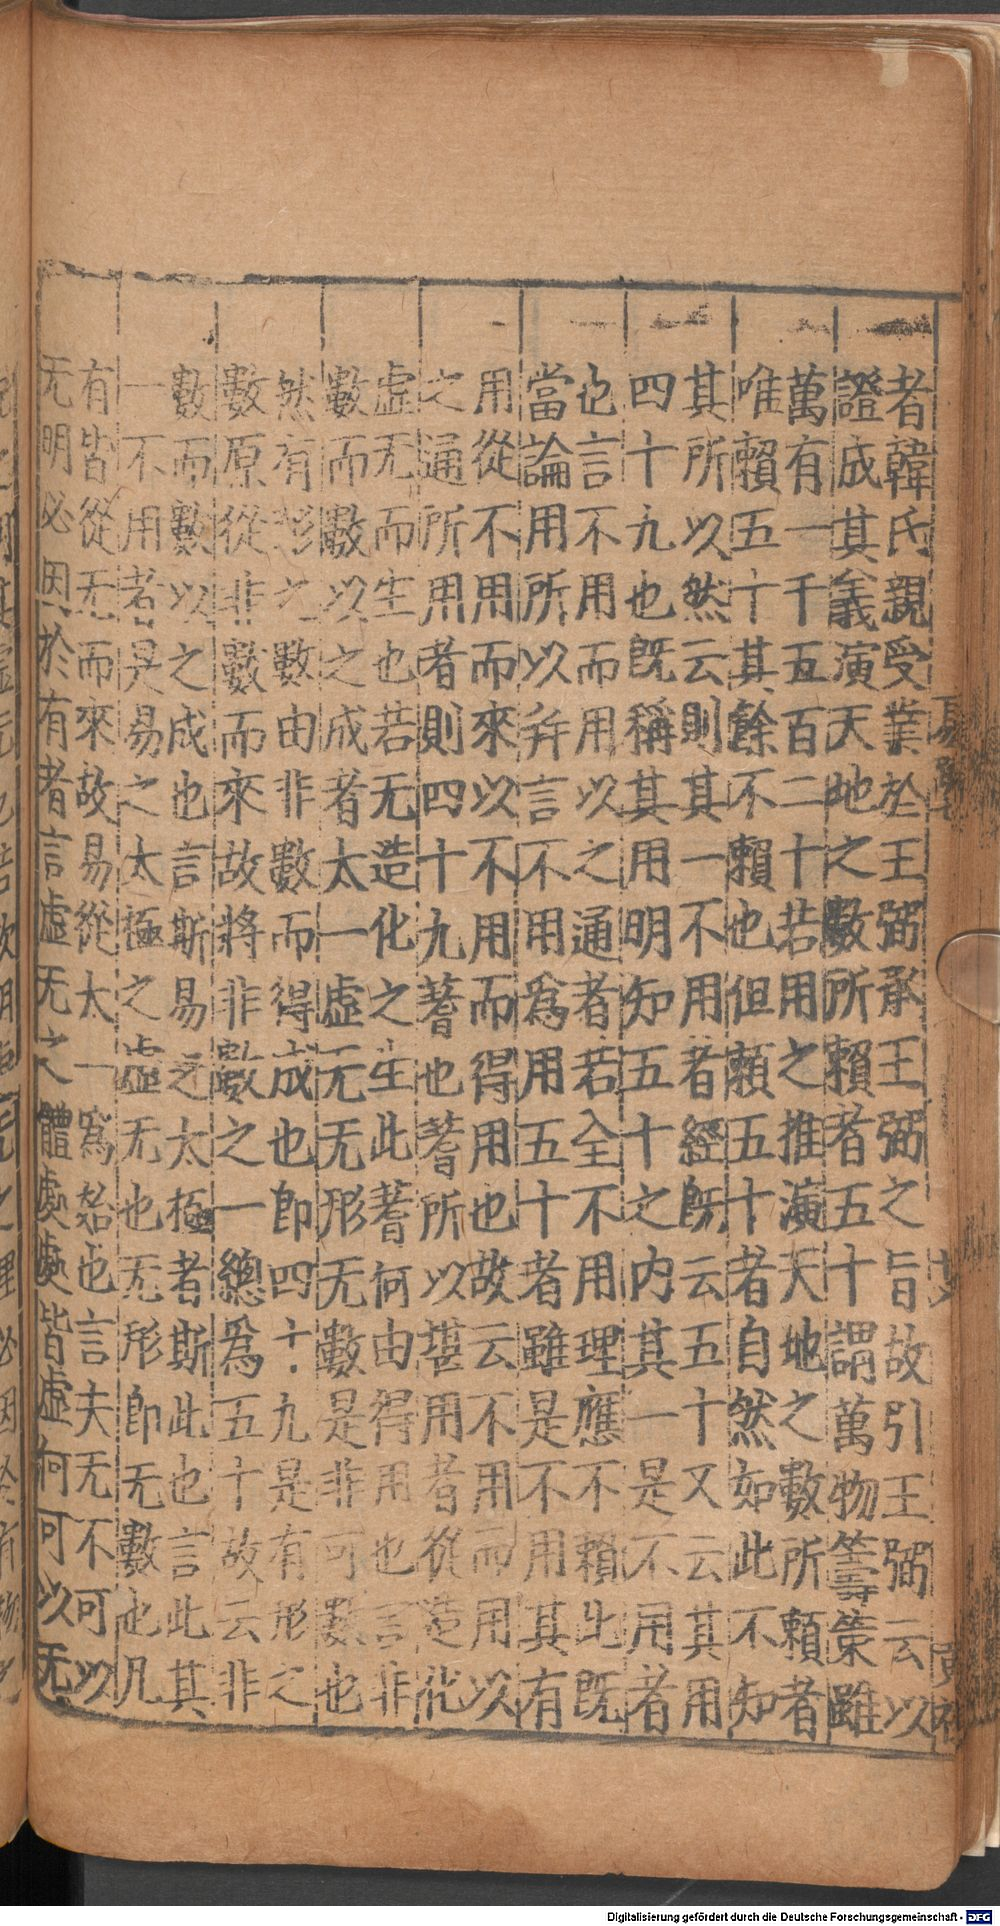 者韓氏親受業於王弼承王弼之旨故引王弼云以
證成其義演天地之數所賴者五十謂萬物籌策雖
萬有一千五百二十若用之推演天地之數所賴者
唯賴五十其餘不賴也但賴五十者自然如此不知
其所以然云則其一不用者經既云五十又云其用
四十九也既稱其用明知五十之内其一是不用者
也言不用而用以之通者若全不用理應不賴此既
當論用所以并言不用爲用五十者雖是不用其有
用從不用而來以不用而得用也故云不用而用以
之通所用者則四十九蓍也蓍所以堪用者從造化
虛无而生也若无造化之生此蓍何由得用也言非
數而數以之成者太一虛无无形无數是非可數也
然有形之數由非數而得成也即四十九是有形之
數原從非數而來故將非數之一總爲五十故云非
數而數以之成也言斯易之太極者斯此也言此其
一不用者是易之太極之虛无也无形即无數也凡
有皆從无而來故易從太一爲始也言夫无不可以
无明必因於有者言虛无之體處處皆虛何可以无
Digitalisierung gefördert durch die Deutsche Forschungsgemeinschaft - DFG